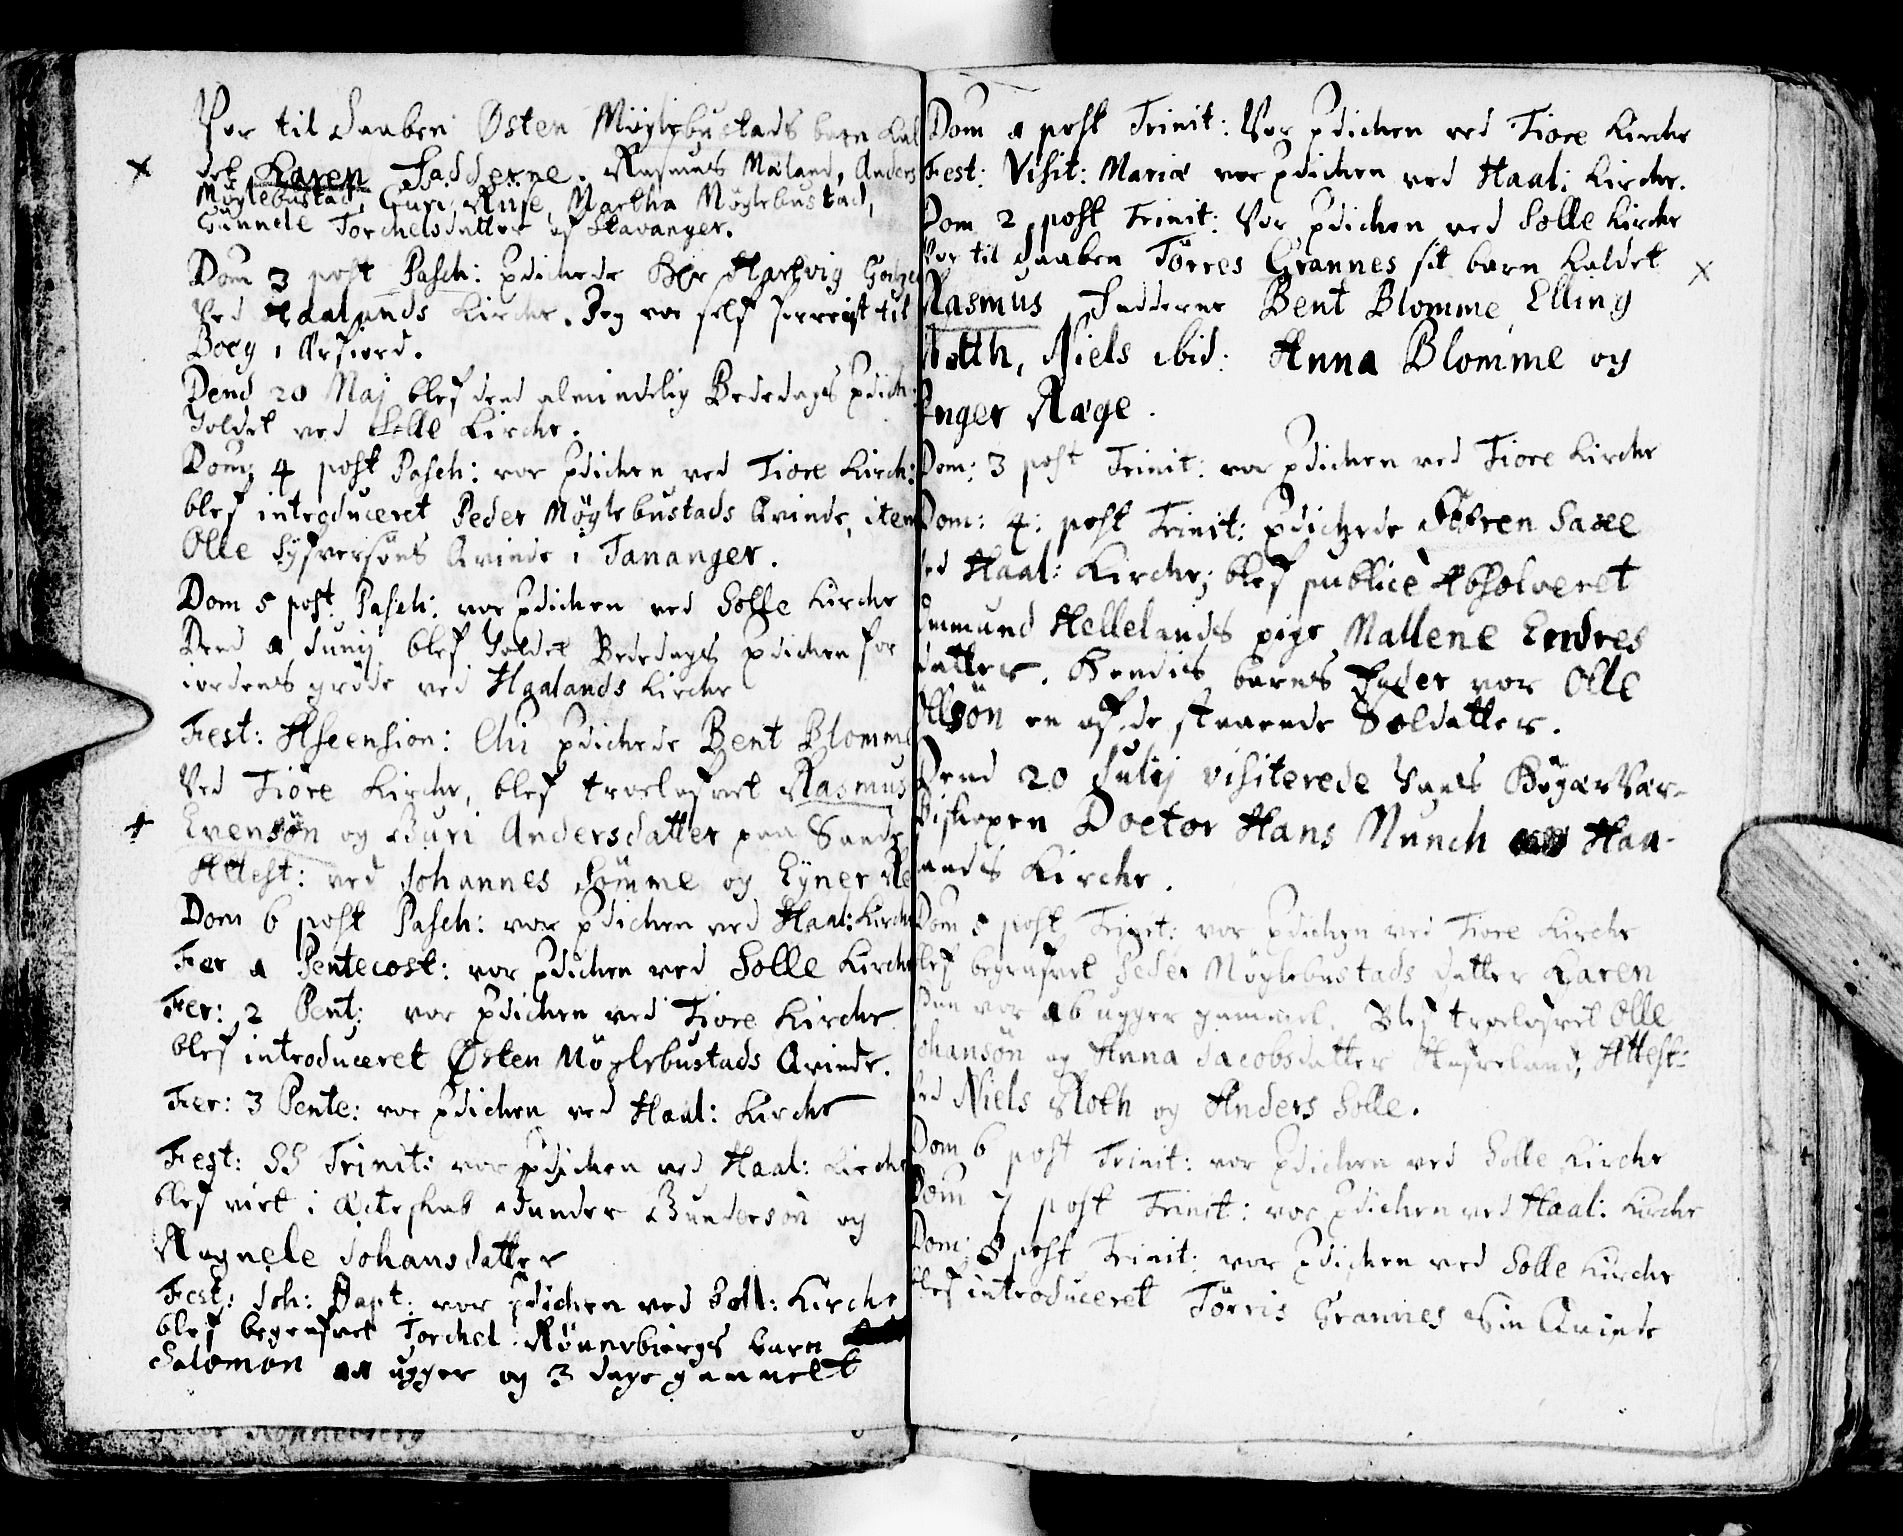 Var til Daaben Østen Møglebustads barn kal
det Karen Fadderne. Rasmus Mæland, Anders
Møglebustad, Guri Ruse, Martha Møglebustad,
Gunnele Torchelsdatter af Stavanger.
Dom 3 post Pasch: prdichede Her Hartvig
Ved Haalands Kirche. Jeg var self forreist til
Boeg i
Dend 20 Maj blef dend almindelig Bededags prdich:
Holdet ved Solle Kirche.
Dom 4 post Pasch: var prdichen ved Tiore Kirch:
blef introduceret Peder Møglebustads Qvinde, item
Olle Syfversøns Qvinde i Tananger.
Dom 5 post Pasch: var prdichen ved Solle Kirche
Dend 1 Junij blef Holdet Bededags prdichen for
iordens grøde ved Haalands Kirche
Fest: Ascension: Chi prdichede Bent Blomme
Ved Tiore Kirche, blef troelofvet Rasmus
Evensøn og Guri Andersdatter paa Sande
Attest: ved Johannes Sømme og Eyner
Dom 6 post Pasch: var prdichen ved Haal: Kirche
Fer 1 Pentecost: var prdichen ved Solle Kirche
Fer: 2 Pent: var prdichen ved Tiore Kirche
blef introduceret Østen Møglebustads Qvinde.
Fer: 3 Pente: var prdichen ved Haal: Kirche
Fest: SS Trinit: var prdichen ved Haal: Kirche
blef viet i Ægteskab Gundersøn og
Ragnele Johansdatter
Fest: Joh: Bapt: var prdichen ved Soll: Kirche
blef begrafvet Torchel Rønnebiergs barn
Salomon 11 uger og 3 dage gammelt
Dom 1 post Trinit: Var prdichen ved Tiore Kirche
Fest: Visit: Mariæ var prdichen ved Haal: Kirche.
Dom 2 post Trinit: Var prdichen ved Solle Kirche
Var til Daaben Törres Grannes sit barn kaldet
Rasmus Fadderne Bent Blomme, Elling
Roth, Niels ibid: Anna Blomme og
Inger Ræge.
Dom: 3 post Trinit: var prdichen ved Tiore Kirche
Dom: 4: post Trinit: prdichede Sören Saxe
ved Haal: Kirche; blef publice Absolveret
Hellelands pige Mallene Endres
datter. Hendis barns Fader var Olle
Olsøn en af de staaende Soldatter.
Dend 20 Julij visiterede Hans Høyærvær-
Biskopen Doctor Hans Munch Haa-
lands Kirche.
Dom 5 post Trinit: var prdichen ved Tiore Kirche
blef begrafvet Peder Møglebustads datter Karen
Hun var 16 uger gammel. Blef troelofvet Olle
Johansøn og Anna Jacobsdatter Attest:
ved Niels Roth og Anders Solle.
Dom 6 post Trinit: var prdichen ved Solle Kirche
Dom 7 post Trinit: var prdichen ved Haal: Kirche
Dom: 8 post Trinit: var prdichen ved Solle Kirche
blef introduceret Törris Grannes Sin Qvinde